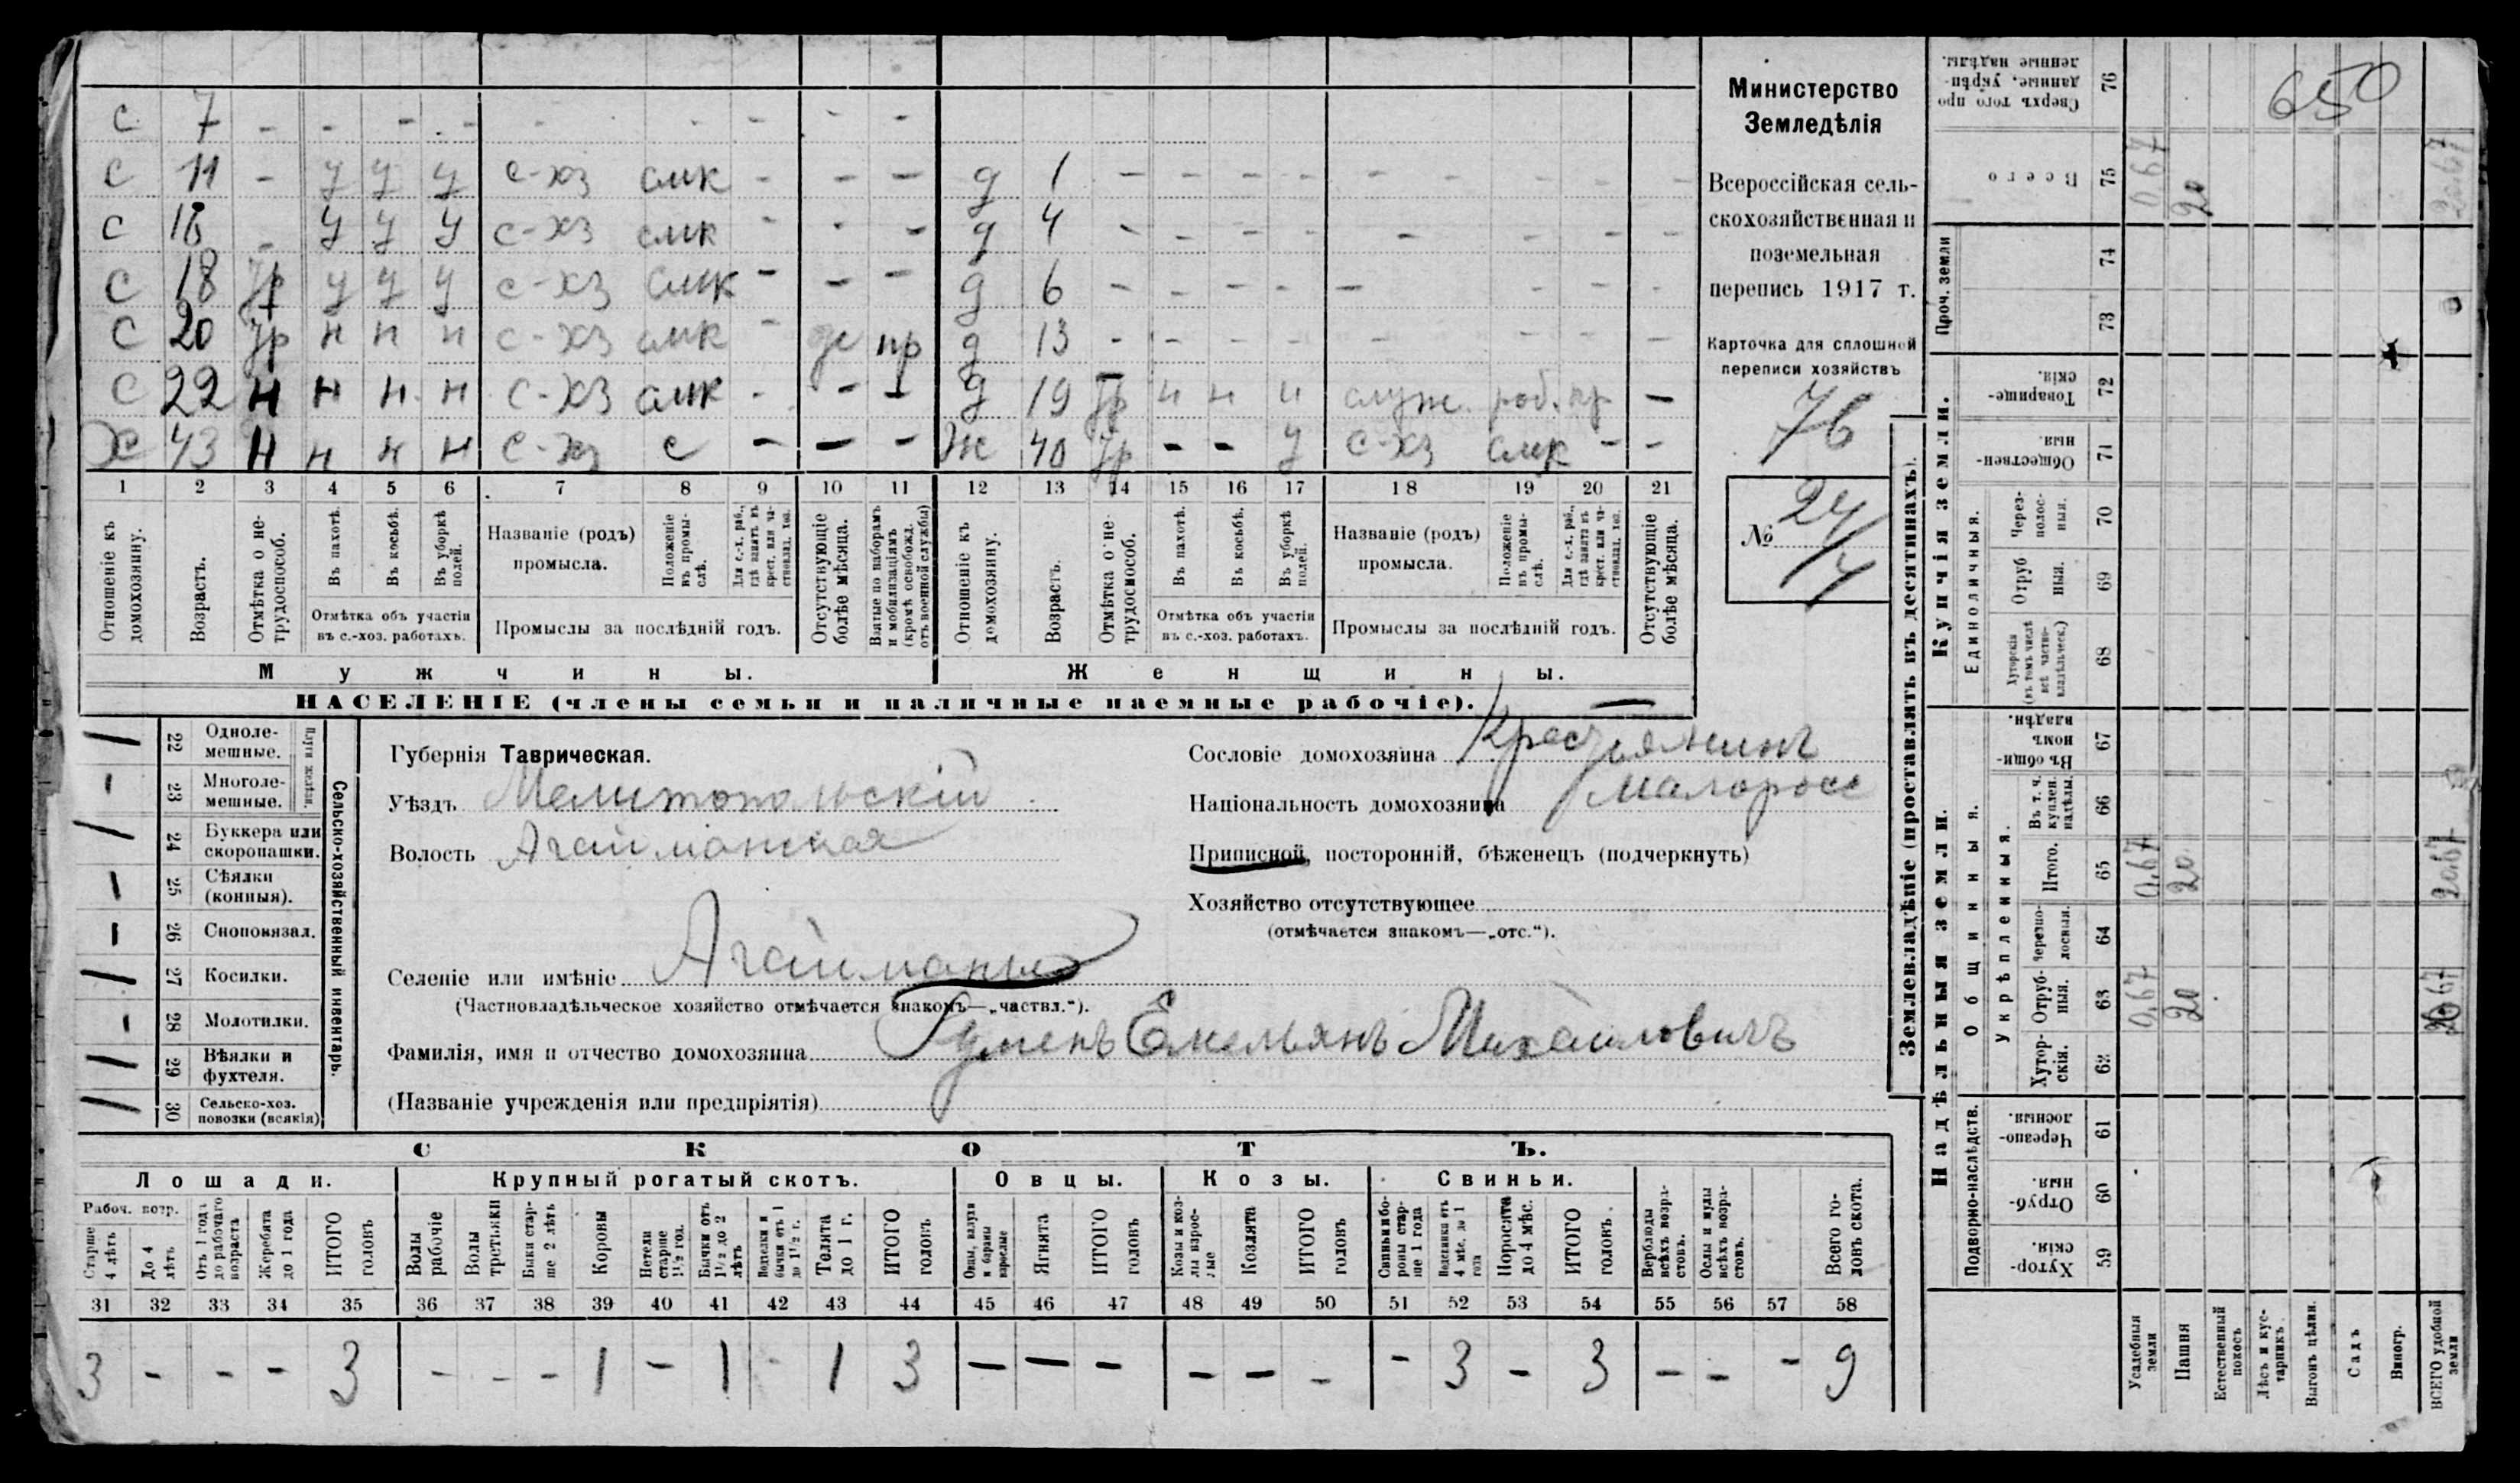 с 7 - - - - - - - - -
с 11 - у у у с-хз смк - - - д 1 - - - - - - - -
с 16 - у у у с-хз смк - - - д 4 - - - - - - - -
с 18 гр у у у с-хз смк - - - д 6 - - - - - - -
с 20 гр н н н с-хз смк - пр д 13 - - - - - - - -
с 22 н н н н с-хз смк - - - д 19 гр н н н служ. раб. -
Х 43 н н н н с-хз с - - - ж 40 гр - - у с-хз смк - -
1 2 3 4 5 6 7 8 9 10 11 12 13 14 15 16 17 18 19 20 21
Отношеніе къ домохозяину.
Возрастъ.
Отмѣтка о нетрудоспособ.
Въ пахотѣ.
Въ косьбѣ.
Въ уборкѣ полей.
Отмѣтка объ участіи въ с.-хоз. работахъ.
Названіе (родъ) промысла.
Положеніе въ промыслѣ.
Для с.-х. раб., гдѣ занятъ въ крест. или частновлад. хоз.
Промыслы за послѣдній годъ.
Отсутствующіе болѣе мѣсяца.
Взятые по наборамъ и мобилизаціямъ (кромѣ освобожд. отъ военной службы)
Отношеніе къ домохозяину.
Возрастъ.
Отмѣтка о нетрудоспособ.
Въ пахотѣ.
Въ косьбѣ.
Въ уборкѣ полей.
Отмѣтка объ участіи въ с.-хоз. работахъ.
Названіе (родъ) промысла.
Положеніе въ промыслѣ.
Для с.-х. раб., гдѣ занята въ крест. или частновлад. хоз.
Промыслы за послѣдній годъ.
Отсутствующіе болѣе мѣсяца.
Мужчины.
Женщины.
НАСЕЛЕНІЕ (члены семьи и наличные наемные рабочіе).
Министерство
Земледѣлія
Всероссійская сель-
скохозяйственная и
поземельная
перепись 1917 г.
Карточка для сплошной
переписи хозяйствъ
76
№ 24/7
Сельско-хозяйственный инвентарь.
Плуги желѣзн.
22 Одноле-
мешные. 1
23 Многоле-
мешные. -
24 Буккера или
скоропашки. 1
25 Сѣялки
(конныя). -
26 Сноповязал. -
27 Косилки. 1
28 Молотилки. -
29 Вѣялки и
фухтеля. 1
30 Сельско-хоз.
повозки (всякія) 1
Губернія Таврическая.
Уѣздъ Мелитопольскій
Волость Агайманская
Селеніе или имѣніе Агайманы
(Частновладѣльческое хозяйство отмѣчается знакомъ—„частвл.“).
Фамилія, имя и отчество домохозяина Гуменъ Емельянъ Михайловичъ
(Названіе учрежденія или предпріятія)
Сословіе домохозяина Крестьянинъ
Національность домохозяина малоросс
Приписной, посторонній, бѣженецъ (подчеркнуть)
Хозяйство отсутствующее
(отмѣчается знакомъ—„отс.“).
СКОТЪ.
Лошади. Крупный рогатый скотъ. Овцы. Козы. Свиньи.
Рабоч. возр.
Старше 4 лѣтъ
До 4 лѣтъ
Отъ 1 года до рабочаго возраста
Жеребята до 1 года
ИТОГО головъ
Волы рабочіе
Волы третьяки
Быки старше 2 лѣтъ
Коровы
Нетели старше 1½ год.
Бычки отъ 1½ до 2 лѣтъ
Подтелки и бычки отъ 1 до 1½ г.
Телята до 1 г.
ИТОГО головъ
Овцы, валухи и бараны взрослые
Ягнята
ИТОГО головъ
Козы и козлы взрослые
Козлята
ИТОГО головъ
Свиньи боровы старше 1 года
Подсвинки отъ 4 мѣс. до 1 года
Поросята до 4 мѣс.
ИТОГО головъ.
Верблюды всѣхъ возрастовъ.
Ослы и мулы всѣхъ возрастовъ.
Всего головъ скота.
31 32 33 34 35 36 37 38 39 40 41 42 43 44 45 46 47 48 49 50 51 52 53 54 55 56 57 58
3 - - - 3 - - - 1 - 1 - 1 3 - - - - - - - 3 - 3 - - - 9
Землевладѣніе (проставлять въ десятинахъ).
Купчія земли.
Надѣльныя земли.
Проч. земли
Единоличныя.
Общинныя.
Укрѣпленныя.
Подворно-наслѣдств.
76 Сверхъ того проданные, укрѣпленные надѣлы.
75 Всего 0.67 20 20.67
74
73
72 Товарищескія.
71 Общественныя.
70 Черезполосныя.
69 Отрубныя.
68 Хуторскія (въ томъ числѣ всѣ частновладѣльческ.)
67 Въ общинномъ владѣн.
66 Въ т. ч. куплен. надѣлы.
65 Итого. 0,67 20. 20.67
64 Черезполосныя.
63 Отрубныя. 0,67 20
62 Хуторскія.
61 Черезполосныя.
60 Отрубныя.
59 Хуторскія.
Усадебныя земли
Пашня
Естественный покосъ
Лѣсъ и кустарникъ.
Выгонъ цѣлин.
Садъ
Виногр.
ВСЕГО удобной земли
650